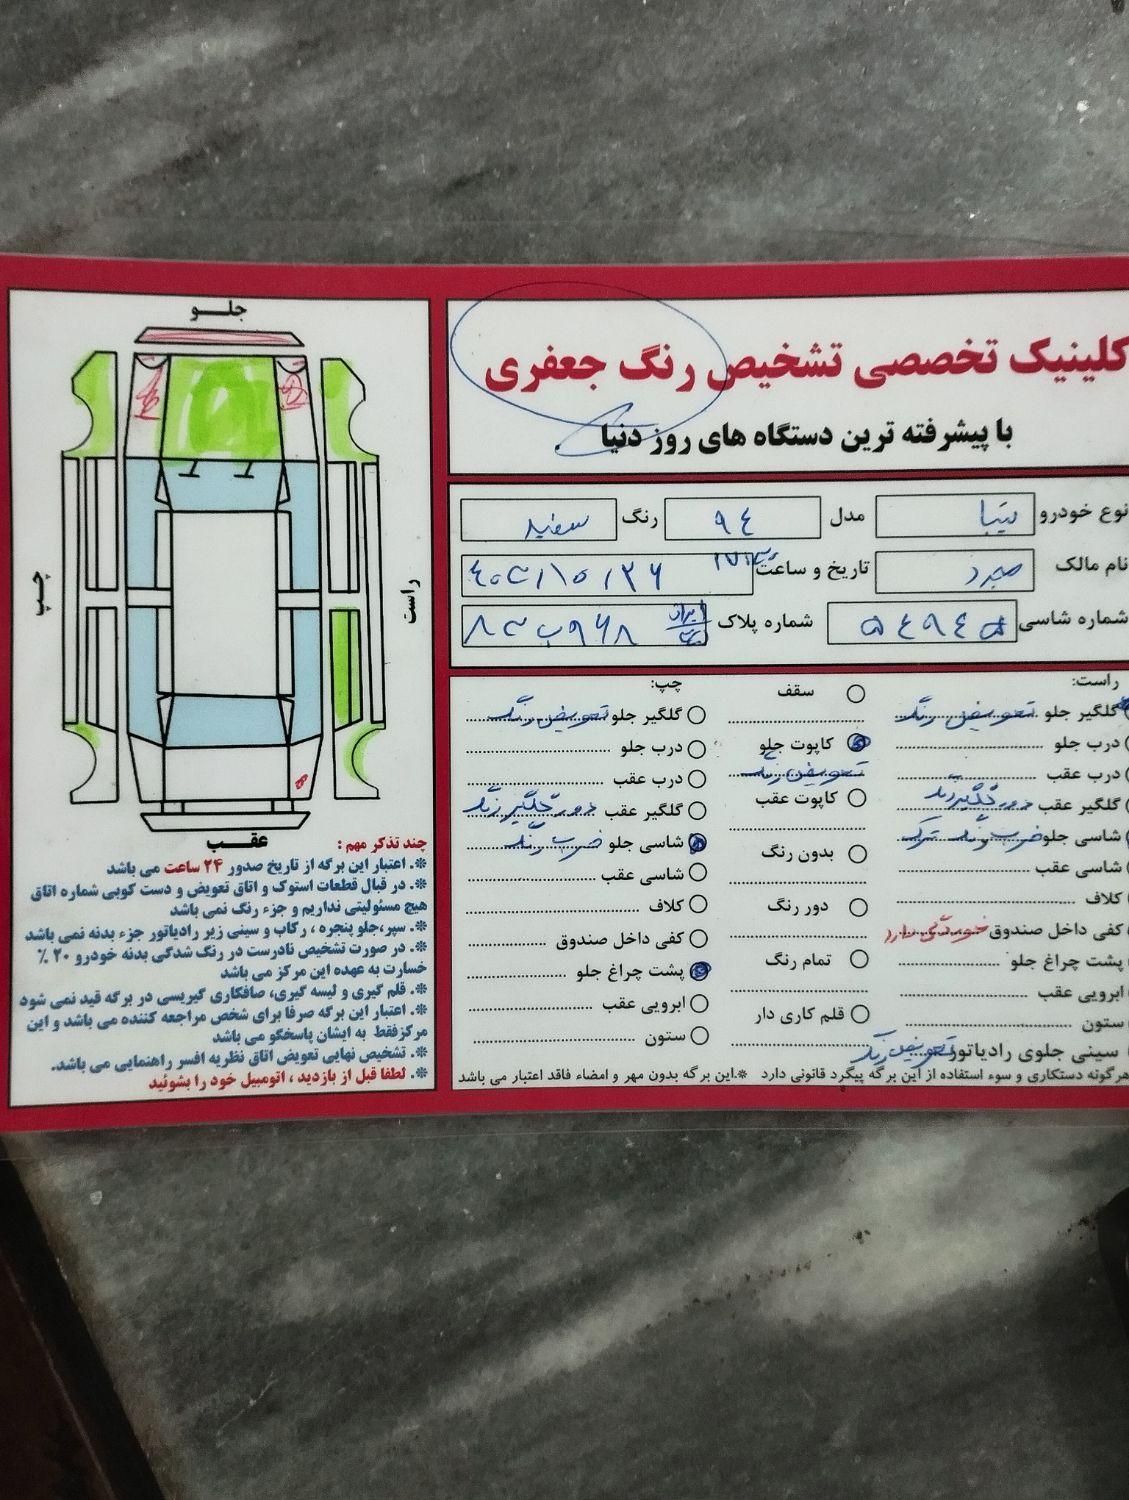 کلینیک تخصصی تشخیص رنگ جعفری
با پیشرفته ترین دستگاه های روز دنیا
نوع خودرو تیبا مدل ۹۴ رنگ سفید
نام مالک تاریخ و ساعت
شماره شاسی ۵۴۹۴۵ شماره پلاک ایران
راست:
گلگیر جلو تعویض رنگ
درب جلو
درب عقب
گلگیر عقب دور گلگیر رنگ
شاسی جلو ضرب رنگ ترک
شاسی عقب
کلاف
کفی داخل صندوق خوردگی دارد
پشت چراغ جلو
ابرویی عقب
ستون
سینی جلوی رادیاتور تعویض رنگ
سقف
کاپوت جلو
تعویض رنگ
کاپوت عقب
بدون رنگ
دور رنگ
تمام رنگ
قلم کاری دار
چپ:
گلگیر جلو تعویض رنگ
درب جلو
درب عقب
گلگیر عقب دور گلگیر رنگ
شاسی جلو ضرب رنگ
شاسی عقب
کلاف
کفی داخل صندوق
پشت چراغ جلو
ابرویی عقب
ستون
هرگونه دستکاری و سوء استفاده از این برگه پیگرد قانونی دارد ※.این برگه بدون مهر و امضاء فاقد اعتبار می باشد
جلــو
چپ
راست
عقب
چند تذکر مهم :
※. اعتبار این برگه از تاریخ صدور ۲۴ ساعت می باشد
※. در قبال قطعات استوک و اتاق تعویض و دست کوبی شماره اتاق
هیچ مسئولیتی نداریم و جزء رنگ نمی باشد
※. سپر،جلو پنجره ، رکاب و سینی زیر رادیاتور جزء بدنه نمی باشد
※. در صورت تشخیص نادرست در رنگ شدگی بدنه خودرو ۲۰ ٪
خسارت به عهده این مرکز می باشد
※. قلم گیری و لیسه گیری، صافکاری گیریسی در برگه قید نمی شود
※. اعتبار این برگه صرفا برای شخص مراجعه کننده می باشد و این
مرکزفقط به ایشان پاسخگو می باشد
※. تشخیص نهایی تعویض اتاق نظریه افسر راهنمایی می باشد.
※. لطفا قبل از بازدید ، اتومبیل خود را بشوئید